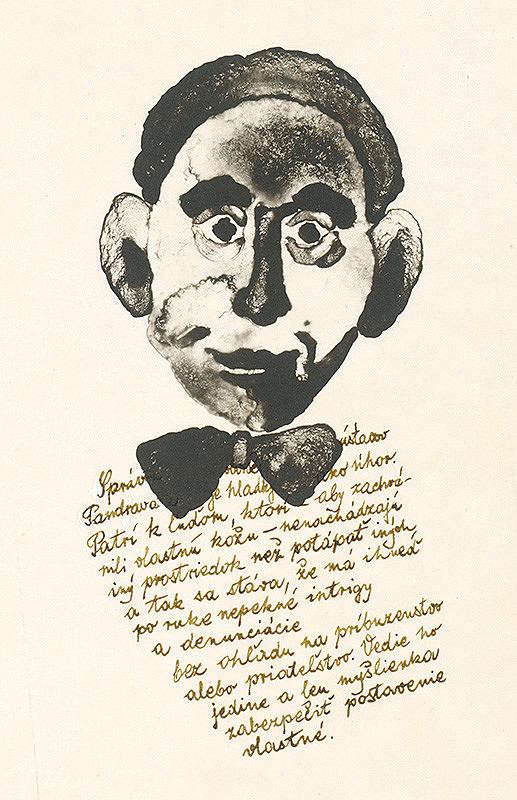 Správ ústavov
Pandrava je hladký ako úhor.
Patrí k ľuďom, ktorí – aby zachrá-
nili vlastnú kožu – nenachádzajú
iný prostriedok než potápať iných,
a tak sa stáva, že má ihneď
po ruke nepekné intrigy
a denunciácie
bez ohľadu na príbuzenstvo
alebo priateľstvo. Vedie ho
jedine a len myšlienka
zabezpečiť postavenie
vlastné.